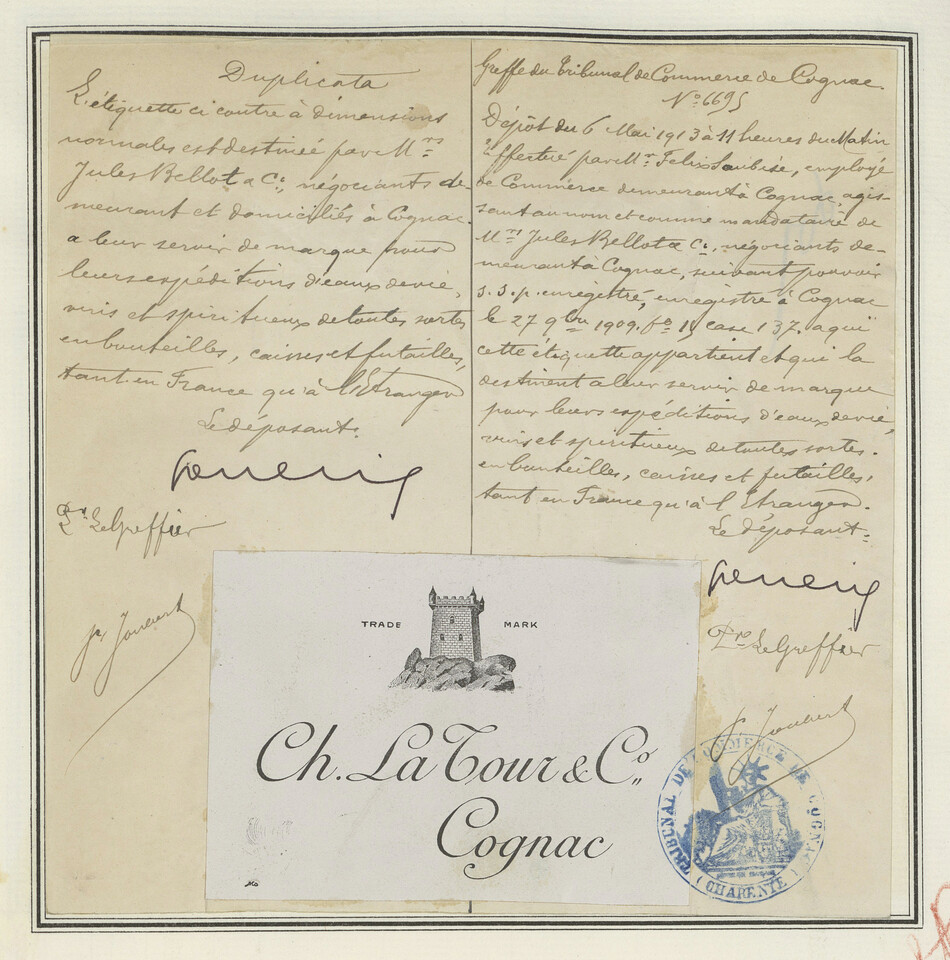 Duplicata
L'étiquette ci contre à dimensions
normales est destinée par Mrs
Jules Bellot & Cie, négociants de-
meurant et domiciliés à Cognac.
a leur servir de marque pour
leurs expéditions d'eaux de vie,
vins et spiritueux de toutes sortes
en bouteilles, caisses et futailles,
tant en France qu'à l'Etranger
Le déposant.
Pr. Le Greffier
Joubert
Greffe du Tribunal de Commerce de Cognac.
No 6695
Dépôt du 6 Mai 1913 à 11 heures du Matin
Effectué par Mr Felix Saubise, employé
de Commerce demeurant à Cognac, agis-
sant au nom et comme mandataire de
Mrs Jules Bellot & Cie, négociants de-
meurant à Cognac, suivant pouvoir
s.s.p. enregistré, enregistré à Cognac
le 27 9bre 1909. fo 15 case 137. a qui
cette étiquette appartient et qui la
destinent a leur servir de marque
pour leurs expéditions d'eaux de vie,
vins et spiritueux de toutes sortes.
en bouteilles, caisses et futailles,
tant en France qu'à l'Etranger.
Le déposant.
Pre Le Greffier
Joubert
TRADE MARK
Ch. La Tour & Co.
Cognac
TRIBUNAL DE COMMERCE DE COGNAC
(CHARENTE)